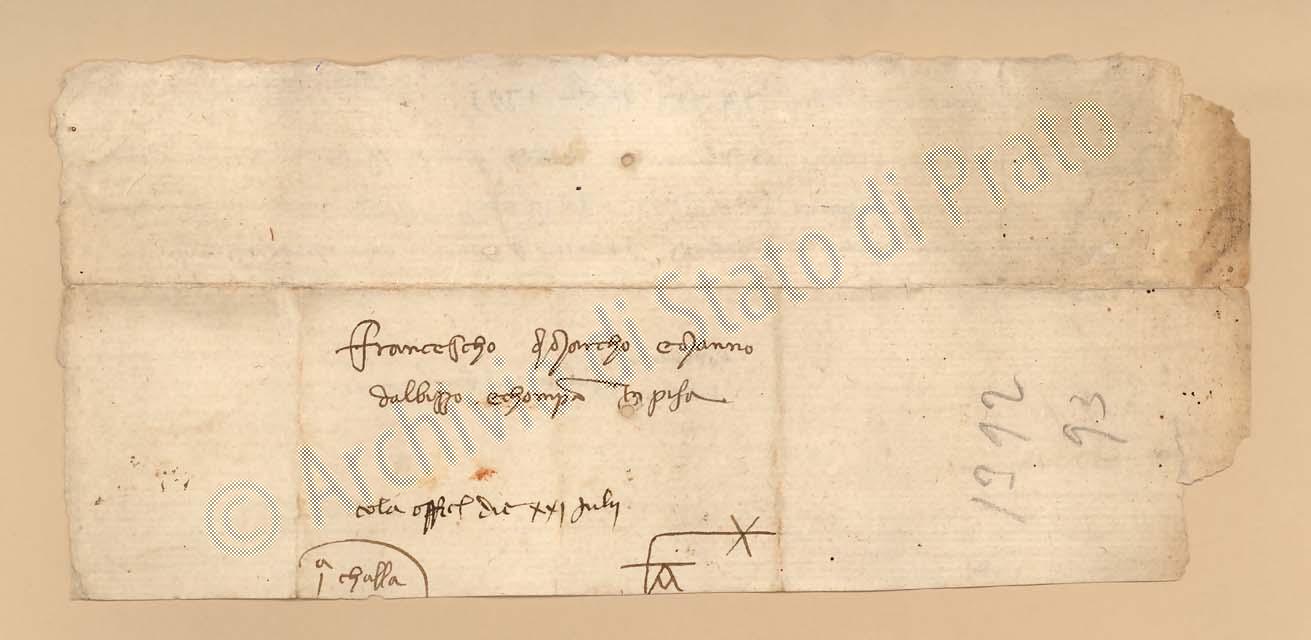 Francescho di Marcho e Manno
dalbizzo e chompa in pisa
cola offici die XXI Julii
1a chassa
1392
93
© Archivio di Stato di Prato